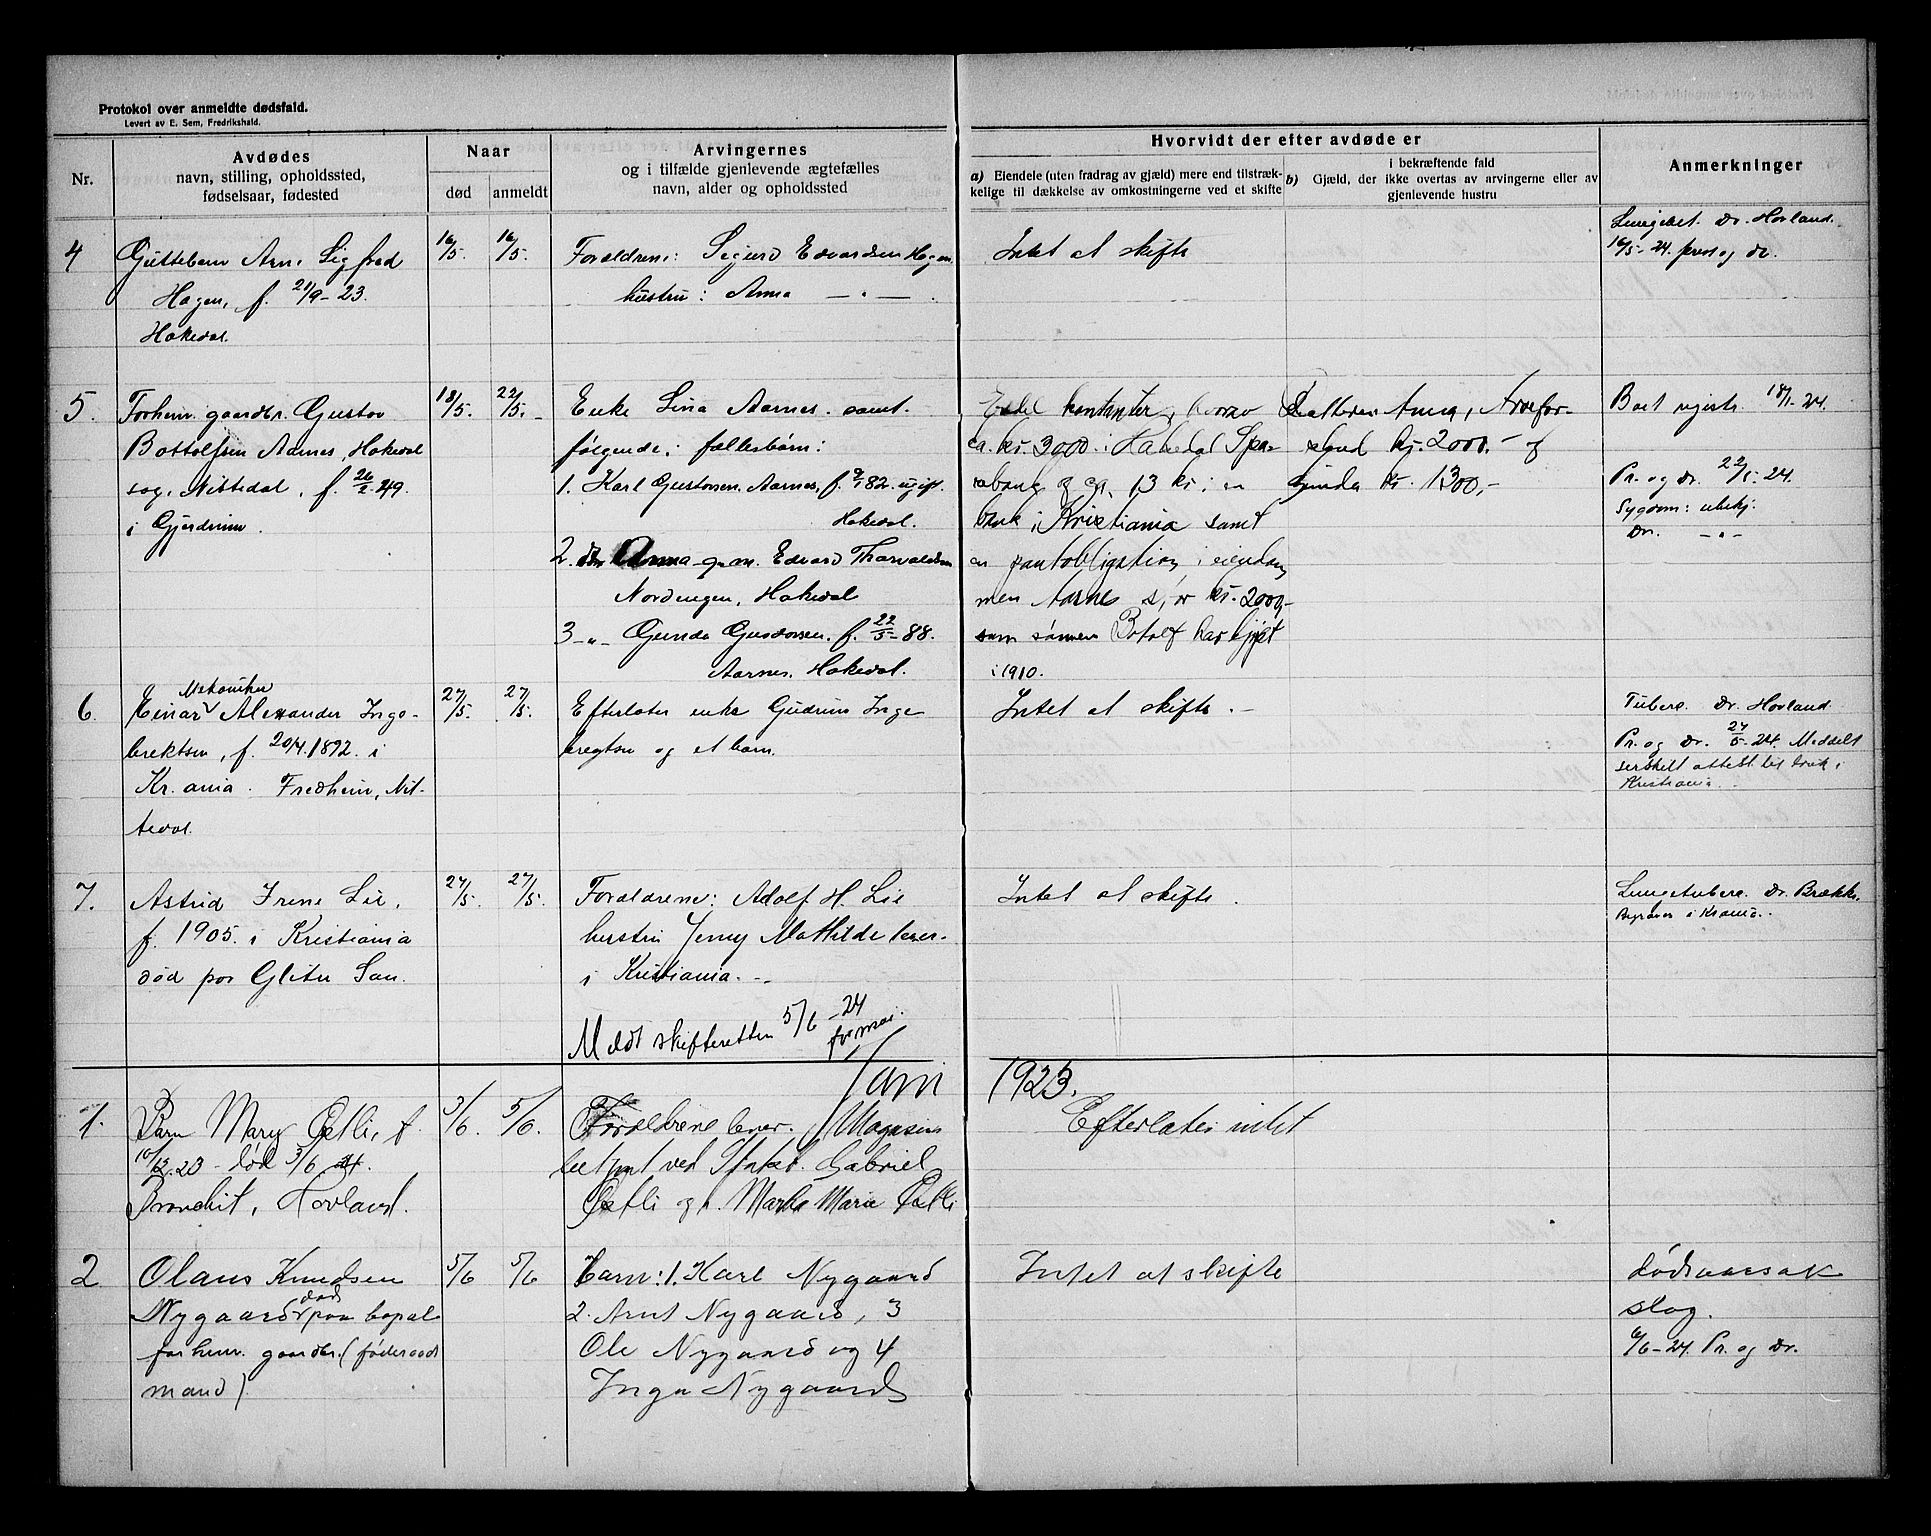 Protokol over anmeldte dødsfald.
Levert av E. Sem, Fredrikshald.
Nr.
Avdødes
navn, stilling, opholdssted,
fødselsaar, fødested
Naar
død
anmeldt
Arvingernes
og i tilfælde gjenlevende ægtefælles
navn, alder og opholdssted
Hvorvidt der efter avdøde er
a) Eiendele (uten fradrag av gjæld) mere end tilstræk-
kelige til dækkelse av omkostningerne ved et skifte
i bekræftende fald
b) Gjæld, der ikke overtas av arvingerne eller av
gjenlevende hustru
Anmerkninger
4
Guttebarn Arne Sigfred
Hagen, f. 21/9-23.
Hakedal.
16/5.
16/5.
Forældrene: Sigurd Edvardsen Hagen
hustru: Anna — " —
Intet at skifte
Dr. Hovland.
16/5-24. prest og dr.
5.
Forhenv. gaardbr. Gustav
Bottolfsen Aarnes, Hakedal
sog, Nittedal, f. 26/2-49.
i Gjerdrum.
18/5.
22/5.
Enke Lina Aarnes. samt.
følgende: fællesbørn:
1. Karl Gustavsen Aarnes, f. 82. ugift.
Hakedal.
2. Anna g. m. Edvard Thorvaldsen
Nordengen, Hakedal
3 -"- Gunda Gustavsen. f. 22/5-88.
Aarnes. Hakedal.
Endel kontanter, hvorav
ca. kr. 3000 i Hakedal Spa-
rebank og ca. 13 kr. i en
bank i Kristiania samt
en pantobligation i eiendom-
men Aarnes s, kr. 2000,-
som sønnen Botolf har kjøpt
i 1910.
Datteren Anna, Arvefor-
skud kr. 2000.- og
Gunda kr. 1300,-
Boet registr. 18/1-24.
Pr. og Dr. 22/5-24.
Sygdom: ubekj.
Dr. — " —
6.
Mekaniker
Einar Alexander Inge-
brektsen, f. 20/4.1892. i
Kr.ania. Fredheim, Nit-
tedal.
27/5.
27/5.
Efterlater enke Gudrun Inge
bregtsen og et barn.
Intet at skifte. -
Tuberc. Dr. Hovland
Pr. og Dr. 27/5-24. Meddelt
serskilt attest til bruk i
Kristiania.
7.
Astrid Irene Lie,
f. 1905. i Kristiania
død paa Glitre San.
27/5.
27/5.
Forældrene: Adolf H. Lie
hustru Jenny Mathilde lever
i Kristiania. -
Intet at skifte.
Lungetuberc. Dr. Brække.
Begraves i Kr.ania.
Meldt skifteretten 5/6-24
for mai.
Juni 1923.
1.
Barn Mary Østli, f.
10/12.23 - død 3/6 24.
Bronchit, Hovland.
3/6.
5/6.
Forældrene lever. Magasin
betjent ved Gabriel
Østli og h. Martha Marie Østli
Efterlater intet
2
Olaus Knudsen
Nygaard død paa bopæl
forhenv. gaardbr. (føderaads
mand).
5/6
5/6
Barn: 1. Karl Nygaard
2. Arnt Nygaard, 3
Ole Nygaard og 4
Inga Nygaard
Intet at skifte
dødsaarsak
slag.
6/6-24. Pr. og Dr.